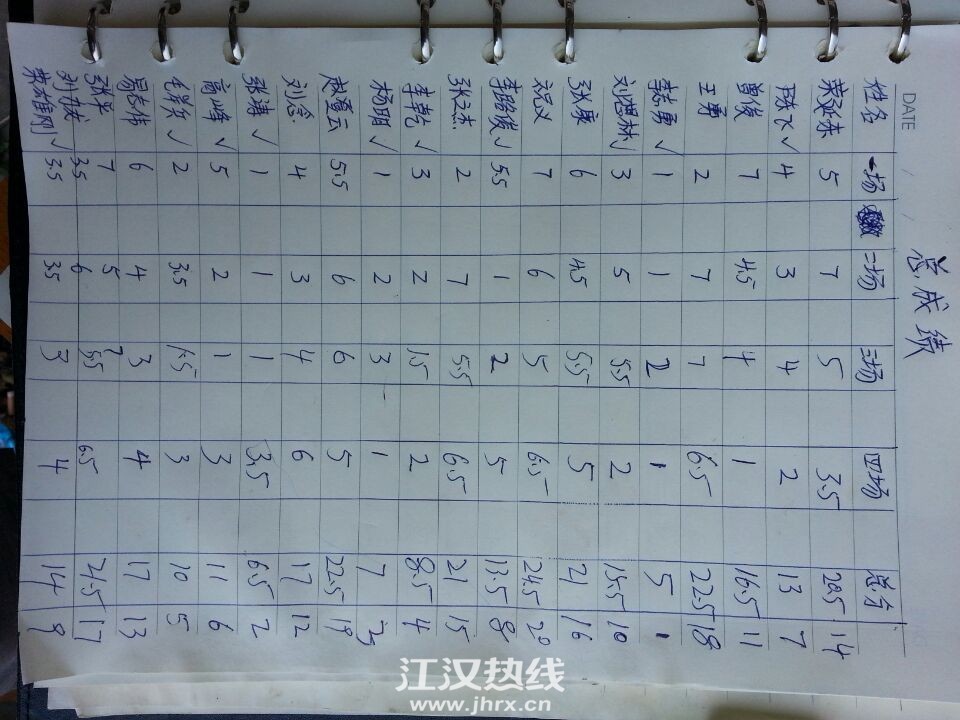 DATE
总成绩
姓名 一场 二场 三场 四场 总分
荣延东 5 7 5 3.5 20.5 14
陈飞 √ 4 3 4 2 13 7
曾俊 7 4.5 4 1 16.5 11
王勇 2 7 7 6.5 22.5 18
李志勇 √ 1 1 2 1 5 1
刘思林 3 5 5.5 2 15.5 10
张康 6 4.5 5.5 5 21 16
祝义 7 6 5 6.5 24.5 20
李晓俊 √ 5.5 1 2 5 13.5 8
张文杰 2 7 5.5 6.5 21 15
李乾 √ 3 2 1.5 2 8.5 4
杨明 √ 1 2 3 1 7 3
赵登云 5.5 6 6 5 22.5 19
刘念 4 3 4 6 17 12
张靖 √ 1 1 1 3.5 6.5 2
高峰 √ 5 2 1 3 11 6
毛毅 √ 2 3.5 1.5 3 10 5
易志伟 6 4 3 4 17 13
张平 7 5 7
刘斌 3.5 6 5.5 6.5 21.5 17
荣雄刚 √ 3.5 3.5 3 4 14 9
江汉热线
www.jhrx.cn